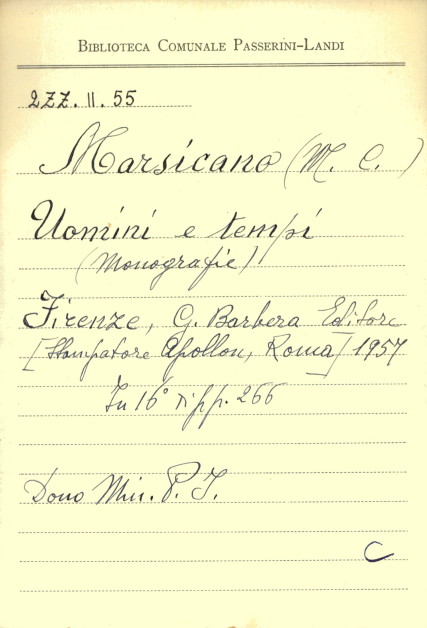 BIBLIOTECA COMUNALE PASSERINI-LANDI
2ZZ. II. 55
Marsicano (M. C. )
Uomini e tempi
(Monografie)
Firenze, G. Barbera Editore
[Stampatore Apollon, Roma] 1957
In 16° di pp. 266
Dono Min. P. I.
C